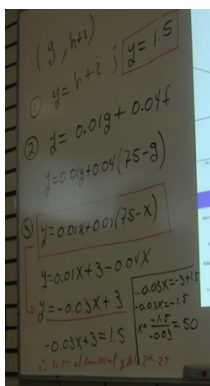 (g, h+2)
① y = h+2 ; y = 1.5
② y = 0.01g + 0.04f
y = 0.01g + 0.04(75-g)
③ y = 0.01x + 0.04(75-x)
y = 0.01x + 3 - 0.04x
y = -0.03x + 3
-0.03x + 3 = 1.5
-0.03x = -3 + 1.5
-0.03x = -1.5
x = -1.5/-0.03 = 50
∴